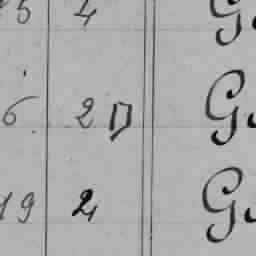 15 4 G
6 2 D G.
19 2 G.